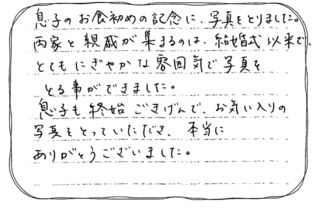 息子のお食初めの記念に、写真をとりました。
両家と親戚が集まるのは、結婚式以来で、
とてもにぎやかな雰囲気で写真を
とる事ができました。
息子も終始ごきげんで、お気に入りの
写真をとっていただき、本当に
ありがとうございました。